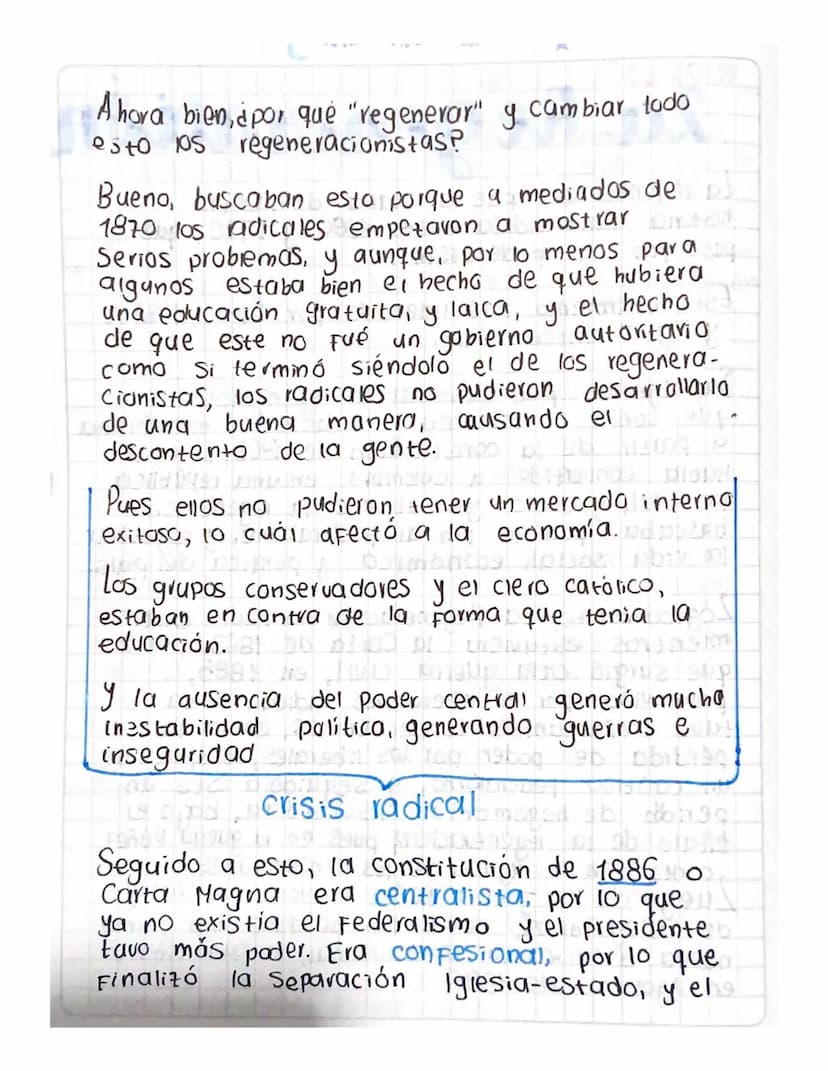 Ahora bien, ¿por qué "regenerar" y cambiar todo
esto los regeneracionistas?
Bueno, buscaban esto porque a mediados de
1870 los radicales empezaron a mostrar
serios problemas, y aunque, por lo menos para
algunos estaba bien el hecho de que hubiera
una educación gratuita, y laica, y el hecho
de que este no fué un gobierno autoritario
como si terminó siéndolo el de los regenera-
cionistas, los radicales no pudieron desarrollarlo
de una buena manera, causando el
descontento de la gente.
Pues ellos no pudieron tener un mercado interno
exitoso, lo cuál afectó a la economía.
Los grupos conservadores y el clero católico,
estaban en contra de la forma que tenia la
educación.
Y la ausencia del poder central generó mucha
inestabilidad política, generando guerras e
inseguridad
crisis radical
Seguido a esto, la constitución de 1886 o
Carta Magna era centralista, por lo que
ya no existía el Federalismo y el presidente
tuvo más poder. Era confesional, por lo que
Finalizó la Separación Iglesia-estado, y el